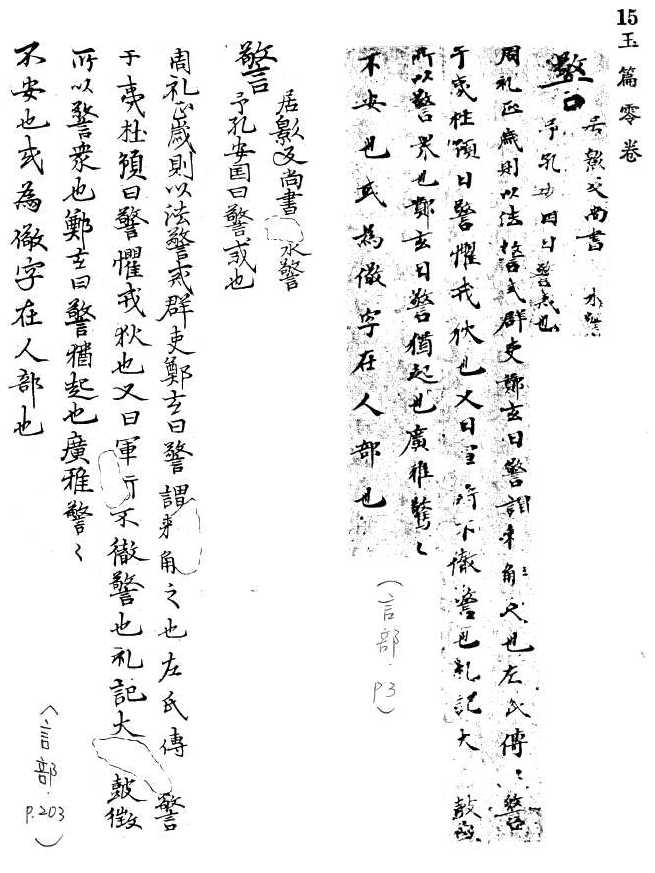 15
玉篇零卷
警
居影反尚書 水警
予孔安国曰警戒也
周礼正歳則以法警戒群吏鄭玄曰警謂来角之也左氏傳 警
于夷杜預曰警懼戒狄也又曰軍所不徹警也礼記大 鼓
所以警衆也鄭玄曰警猶起也廣雅警〻
不安也或為儆字在人部也
(言部 P3)
警
居影反尚書 水警
予孔安国曰警戒也
周礼正歳則以法警戒群吏鄭玄曰警謂来角之也左氏傳 警
于夷杜預曰警懼戒狄也又曰軍行不徹警也礼記大 鼓徴
所以警衆也鄭玄曰警猶起也廣雅警〻
不安也或為儆字在人部也
(言部 P.203)